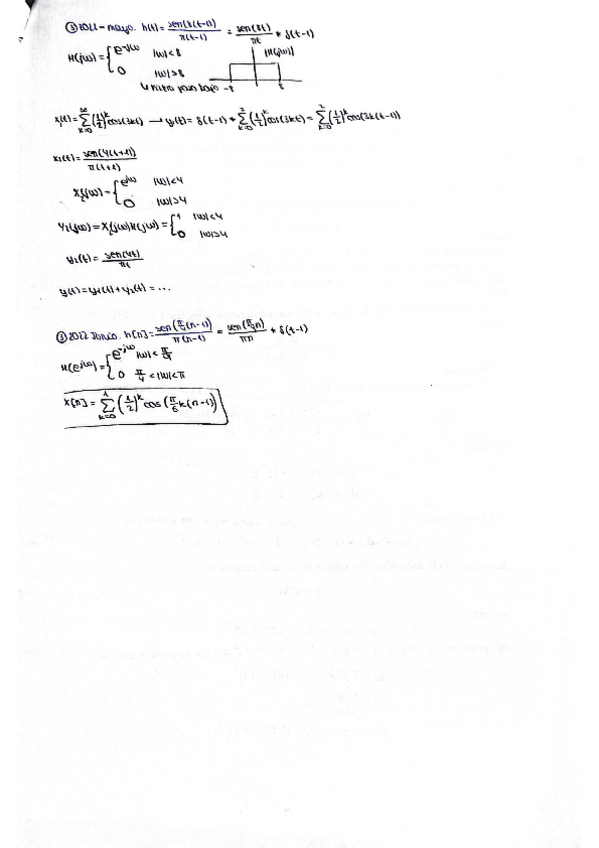 ③ 2022-mayo. h(t) = sen(8(t-1)) / π(t-1) = sen(8t) / πt * δ(t-1)
H(jω) = { e^-jω |ω|<8
0 |ω|>8
|H(jω)|
-8 8
↳ filtro paso bajo
x₁(t) = Σ_{k=0}^{∞} (1/2)^k cos(3kt) → y₁(t) = δ(t-1) * Σ_{k=0}^{2} (1/2)^k cos(3kt) = Σ_{k=0}^{2} (1/2)^k cos(3k(t-1))
x₂(t) = sen(4(t+1)) / π(t+1)
X₂(jω) = { e^jω |ω|<4
0 |ω|>4
Y₂(jω) = X₂(jω)H(jω) = { 1 |ω|<4
0 |ω|>4
y₂(t) = sen(4t) / πt
y(t) = y₁(t) + y₂(t) = ...
③ 2022 Junio. h[n] = sen(π/4(n-1)) / π(n-1) = sen(π/4 n) / πn * δ(t-1)
H(e^jω) = { e^-jω |ω|< π/4
0 π/4 <|ω|<π
x[n] = Σ_{k=0}^{1} (1/2)^k cos(π/6 k(n-1))